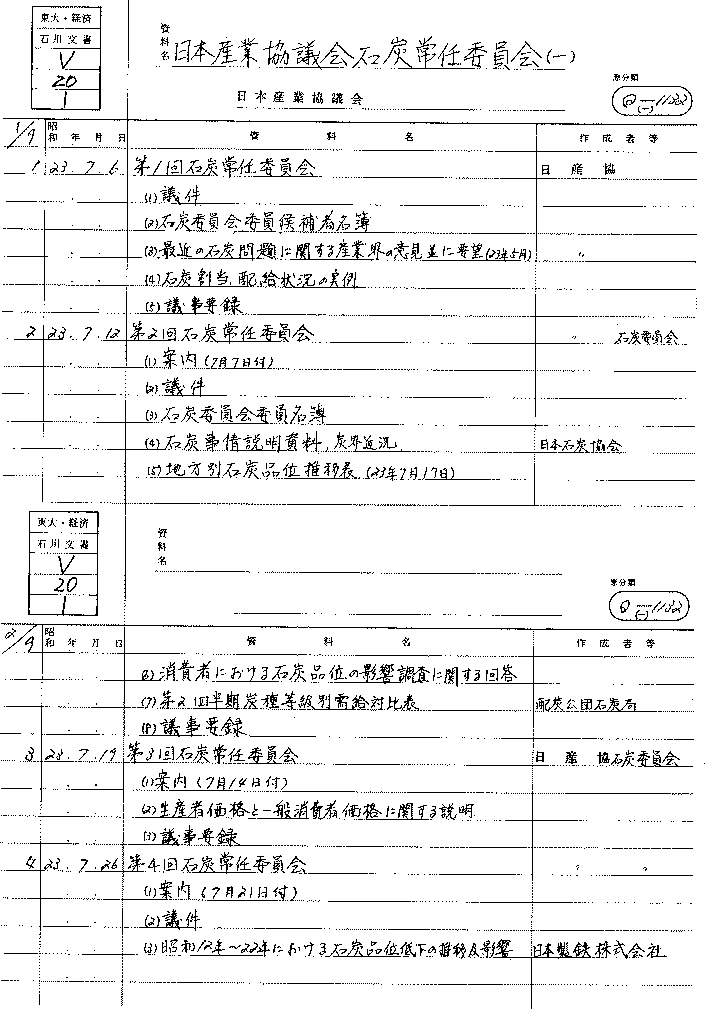 東大・経済
石川文書
V
20
1
資料名 日本産業協議会石炭常任委員会(一)
日本産業協議会
原分類
Q-(一)-1132
1/9 昭和 年 月 日 資 料 名 作 成 者 等
1 23.7.6 第1回石炭常任委員会 日 産 協
(1)議件
(2)石炭委員会委員候補者名簿
(3)最近の石炭問題に関する産業界の意見並に要望(23年5月) 〃
(4)石炭割当、配給状況の実例
(5)議事要録
2 23.7.12 第2回石炭常任委員会 〃 石炭委員会
(1)案内(7月7日付)
(2)議件
(3)石炭委員会委員名簿
(4)石炭事情説明資料、炭界近況 日本石炭協会
(5)地方別石炭品位推移表(23年7月17日)
東大・経済
石川文書
V
20
1
資料名
原分類
Q-(一)-1132
2/9 昭和 年 月 日 資 料 名 作 成 者 等
(6)消費者における石炭品位の影響調査に関する回答
(7)第2四半期炭種等級別需給対比表 配炭公団石炭局
(8)議事要録
3 23.7.19 第3回石炭常任委員会 日 産 協石炭委員会
(1)案内(7月14日付)
(2)生産者価格と一般消費者価格に関する説明
(3)議事要録
4 23.7.26 第4回石炭常任委員会 〃 〃
(1)案内(7月21日付)
(2)議件
(3)昭和12年〜22年における石炭品位低下の推移及影響 日本製鉄株式会社